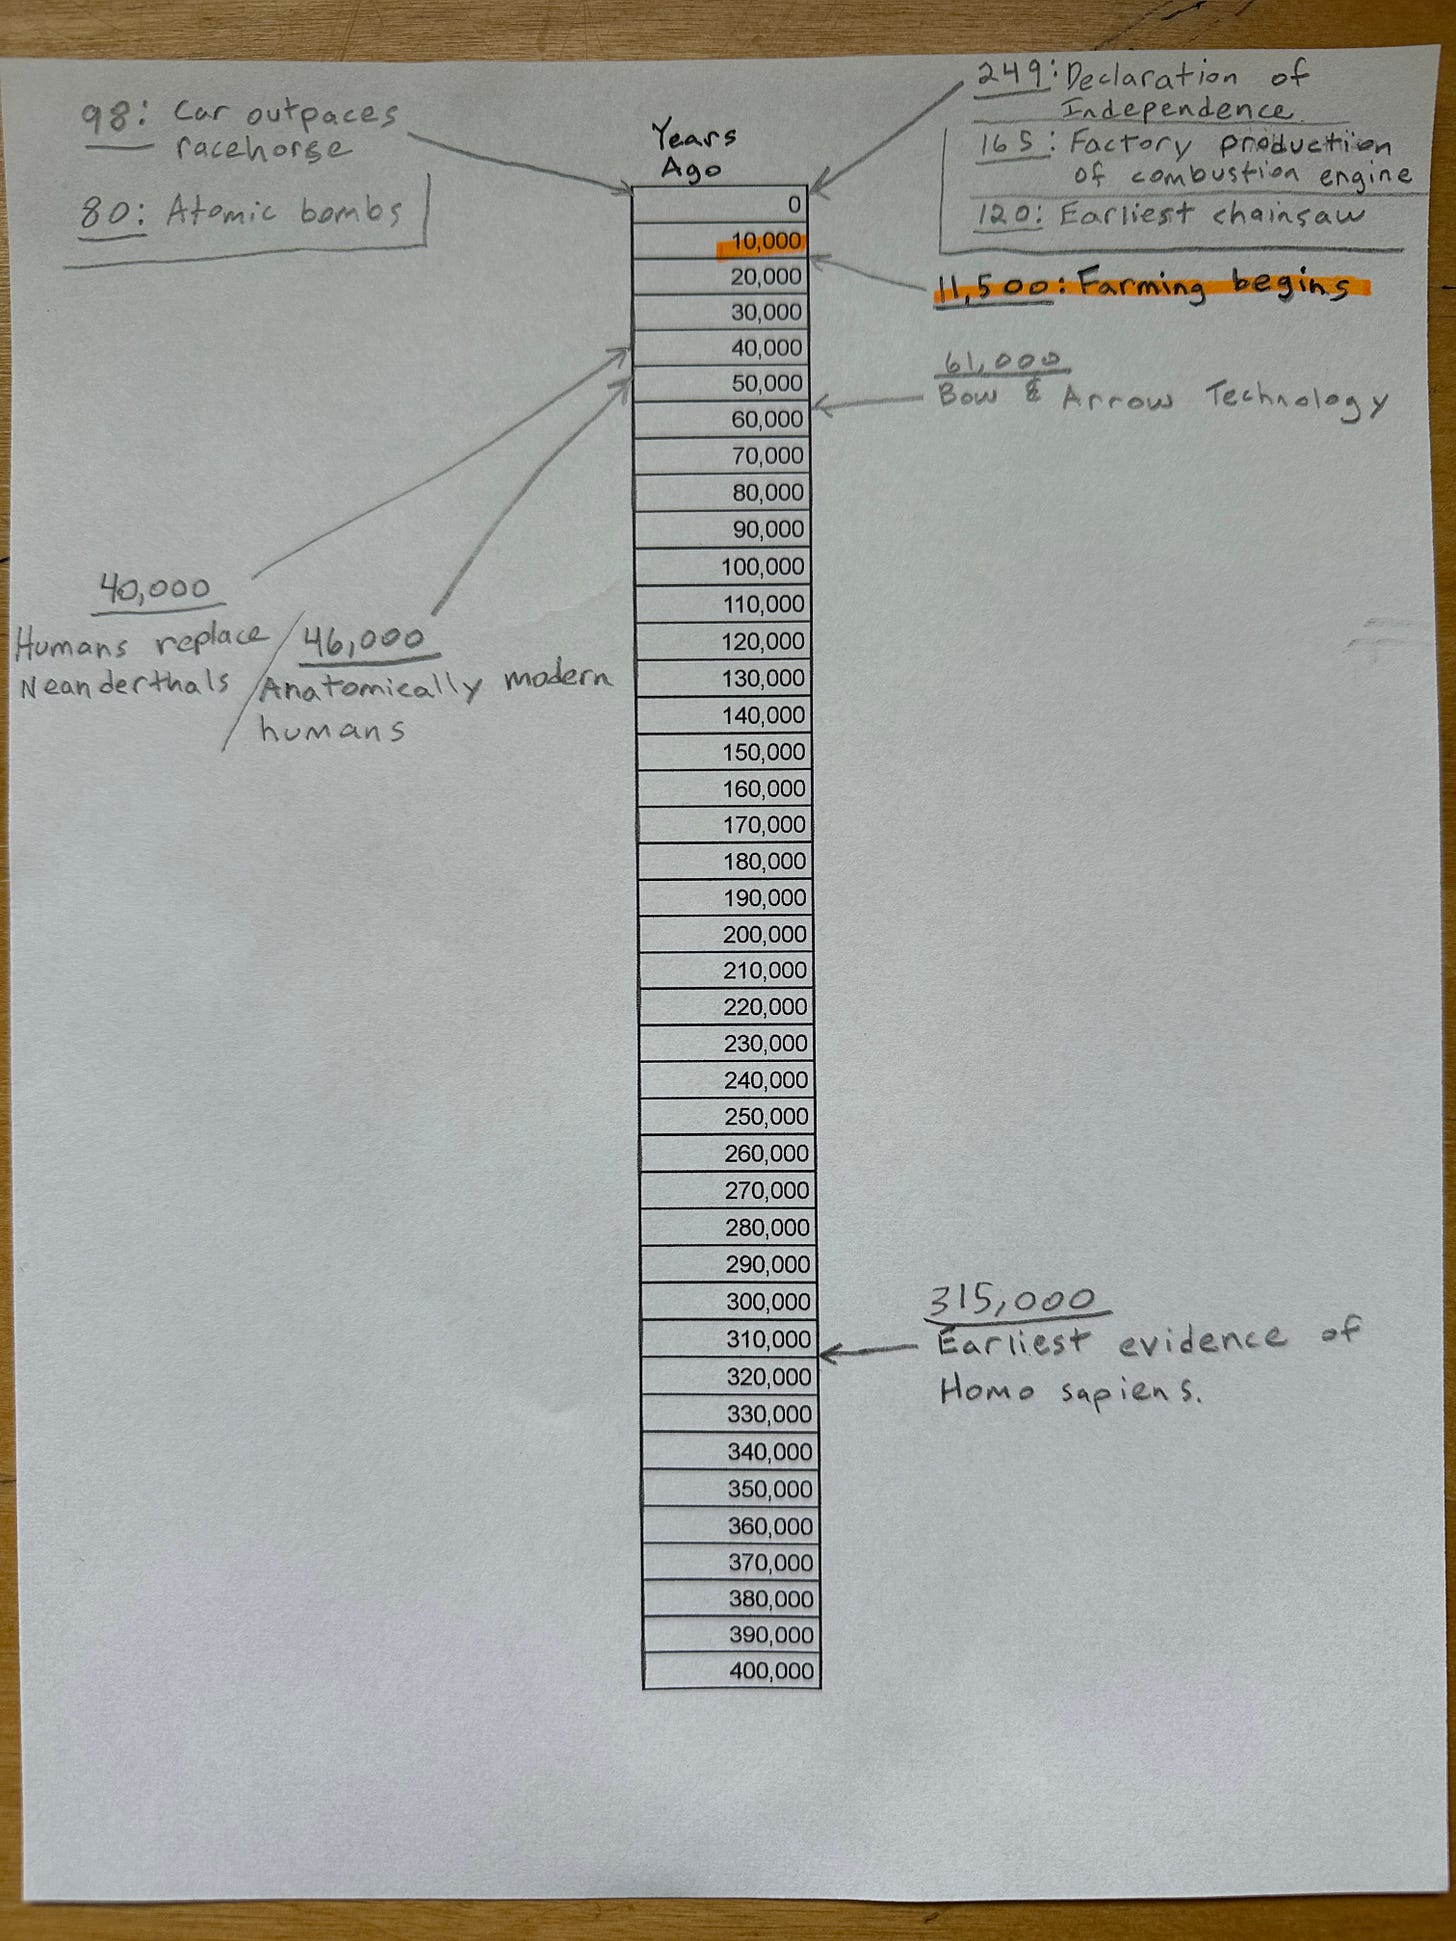 98: Car outpaces
racehorse
80: Atomic bombs
249: Declaration of
Independence
165: Factory production
of combustion engine
120: Earliest chainsaw
11,500: Farming begins
61,000
Bow & Arrow Technology
Years
Ago
0
10,000
20,000
30,000
40,000
50,000
60,000
70,000
80,000
90,000
100,000
110,000
120,000
130,000
140,000
150,000
160,000
170,000
180,000
190,000
200,000
210,000
220,000
230,000
240,000
250,000
260,000
270,000
280,000
290,000
300,000
310,000
320,000
330,000
340,000
350,000
360,000
370,000
380,000
390,000
400,000
40,000
Humans replace
Neanderthals
46,000
Anatomically modern
humans
315,000
Earliest evidence of
Homo sapiens.